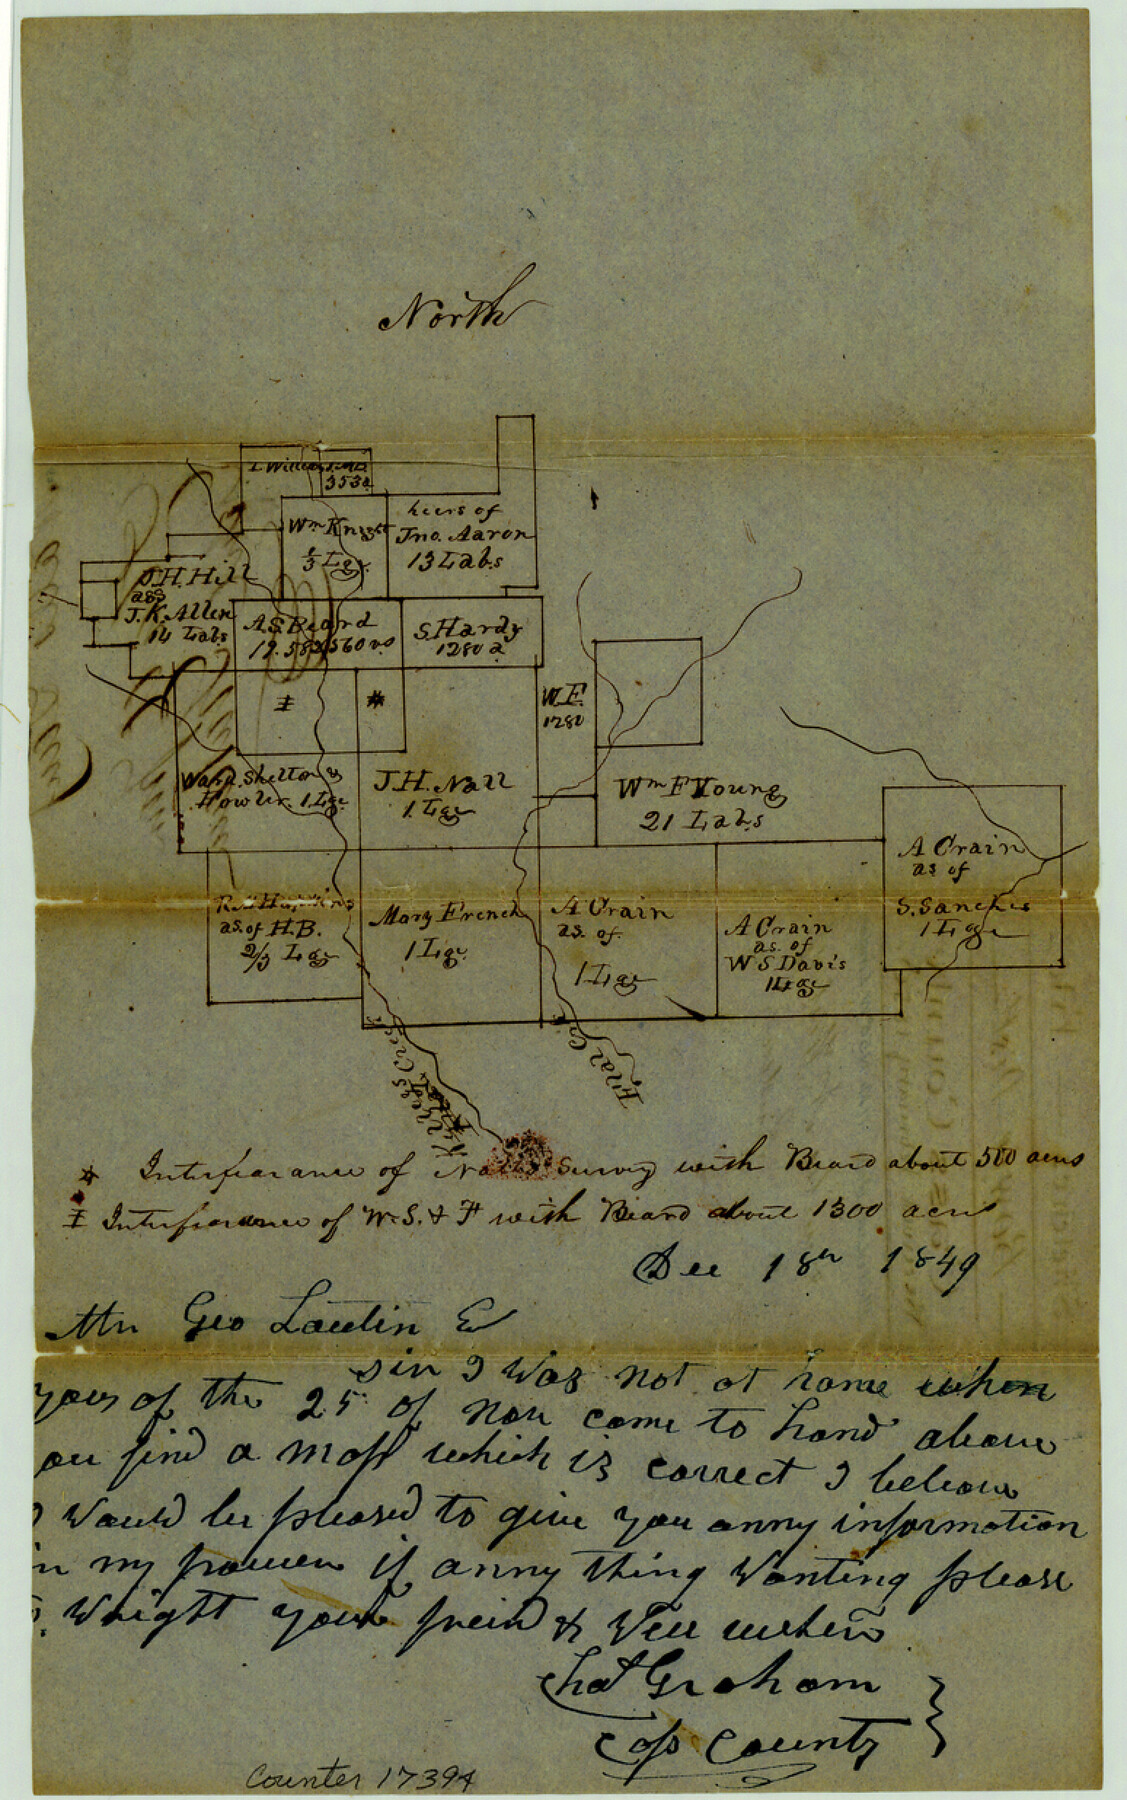 North
L Willi
353a
Wm Knight
1/3 Lge
heirs of
Jno. Aaron
13 Labs
J.H. Hill
ass
J.K. Allen
14 Labs
A.S. Beard
S. Hardy
1280 a
‡
#
W.F.
1280
Ward. Shelton &
Fowler. 1 Lge
J.H. Nall
1. Lge
Wm F Young
21 Labs
A Crain
as of
S. Sanches
1 Lge
as. of H.B.
2/3 Lge
Mary French
1 Lge
A Crain
as. of.
1 Lge
A Crain
as. of
W S Davis
1 Lge
Creek
# Interfearance of Nalls Survey with Beard about 500 acres
‡ Interfearance of W.S. & F with Beard about 1300 acres
Dec 18th 1849
Mr Geo
Sir I Was not at home when
yours of the 25 of Nov come to hand above
ou find a Map which is correct I beleave
Would be pleased to give you anny information
in my power if anny thing Wanting please
Wright your freind & Well
Chas Graham
Cass County
Counter 17394